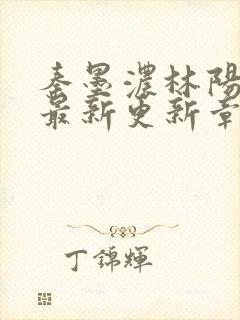 秦墨濃林陽
最新更新章
丁錦輝